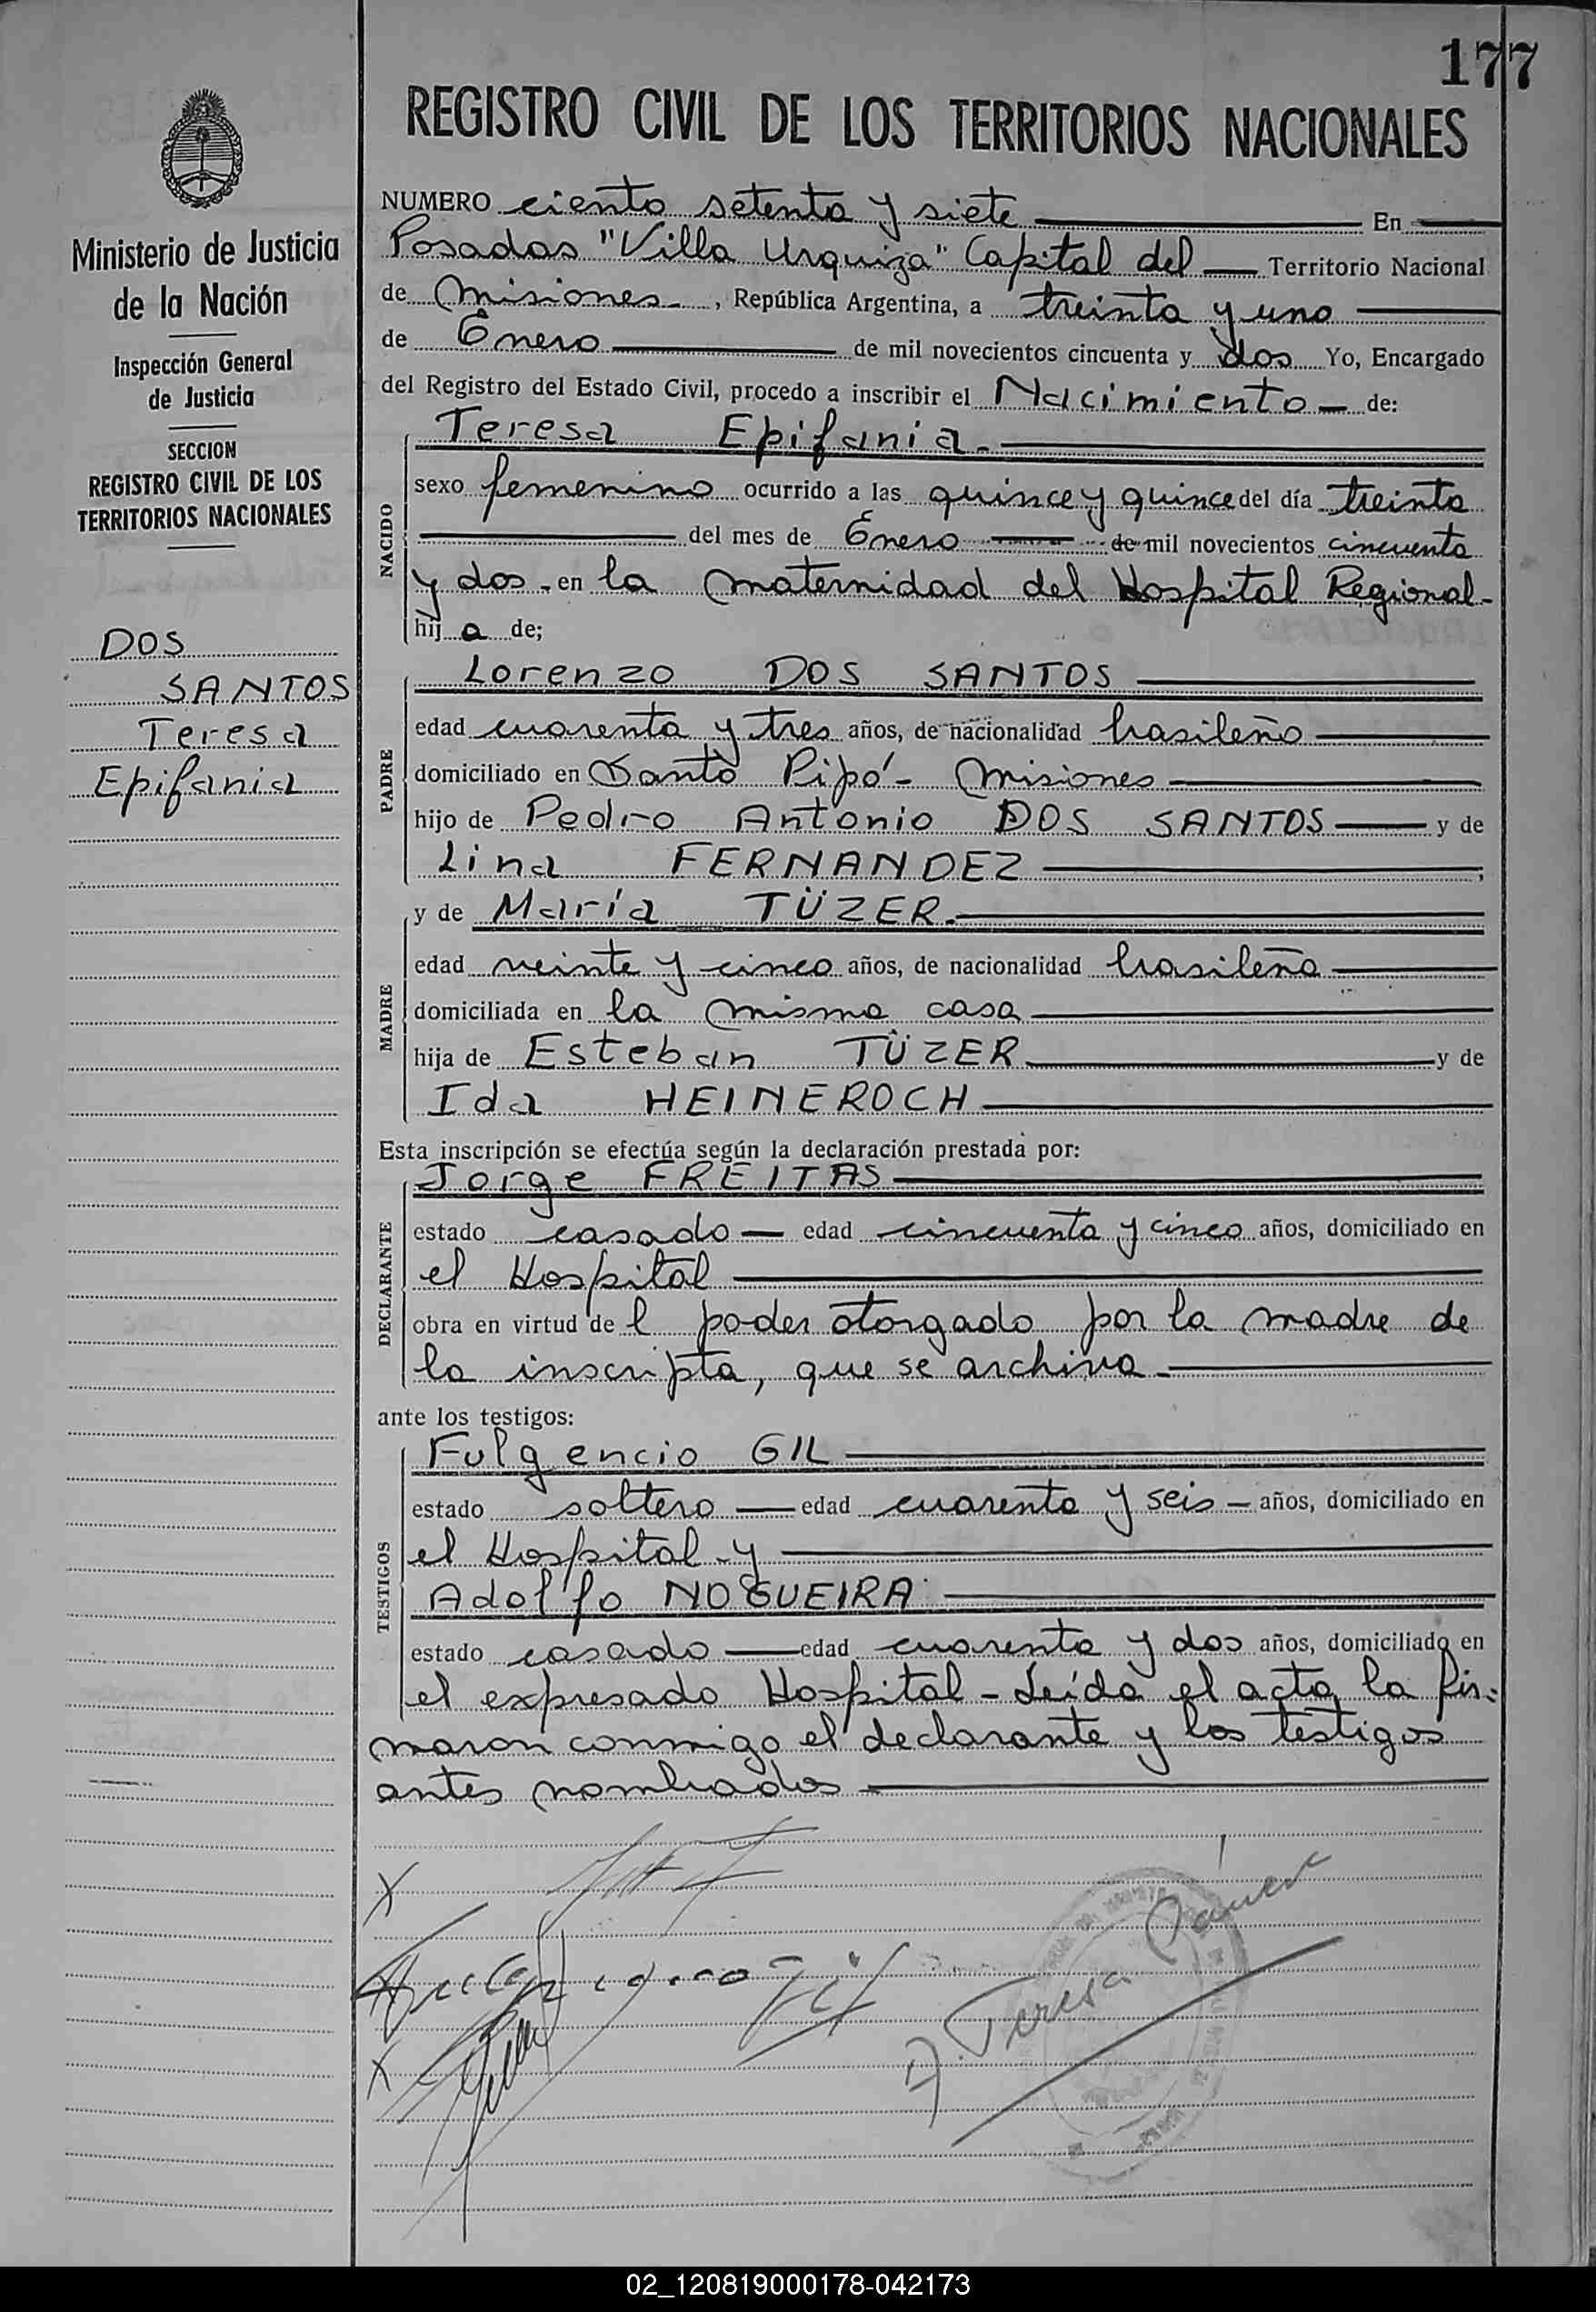 177
REGISTRO CIVIL DE LOS TERRITORIOS NACIONALES
Ministerio de Justicia
de la Nación
Inspección General
de Justicia
SECCION
REGISTRO CIVIL DE LOS
TERRITORIOS NACIONALES
DOS
SANTOS
Teresa
Epifania
NUMERO ciento setenta y siete En
Posadas "Villa Urquiza" Capital del Territorio Nacional
de Misiones, República Argentina, a treinta y uno
de Enero de mil novecientos cincuenta y dos Yo, Encargado
del Registro del Estado Civil, procedo a inscribir el Nacimiento de:
NACIDO
Teresa Epifania.
sexo femenino ocurrido a las quince y quince del día treinta
del mes de Enero de mil novecientos cincuenta
y dos en la maternidad del Hospital Regional
hij a de;
PADRE
Lorenzo DOS SANTOS
edad cuarenta y tres años, de nacionalidad brasileño
domiciliado en Santo Pipó - Misiones
hijo de Pedro Antonio DOS SANTOS y de
Lina FERNANDEZ
MADRE
y de María TÜZER
edad veinte y cinco años, de nacionalidad brasileña
domiciliada en la misma casa
hija de Esteban TÜZER y de
Ida HEINEROCH
Esta inscripción se efectúa según la declaración prestada por:
DECLARANTE
Jorge FREITAS
estado casado edad cincuenta y cinco años, domiciliado en
el Hospital
obra en virtud de l poder otorgado por la madre de
la inscripta, que se archiva
ante los testigos:
TESTIGOS
Fulgencio GIL
estado soltero edad cuarenta y seis años, domiciliado en
el Hospital y
Adolfo NOGUEIRA
estado casado edad cuarenta y dos años, domiciliado en
el expresado Hospital - Leída el acta, la fir-
maron conmigo el declarante y los testigos
antes nombrados
X
X
Teresa
02_120819000178-042173